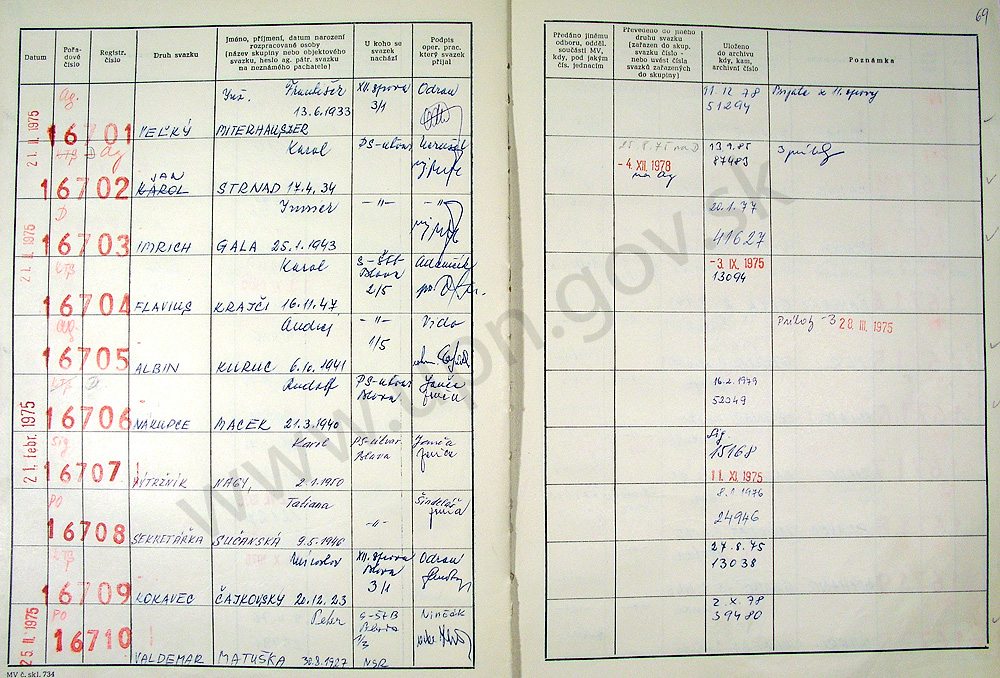 69
Datum
Pořadové číslo
Registr. číslo
Druh svazku
Jméno, příjmení, datum narození rozpracované osoby (název skupiny nebo objektového svazku, heslo ag. pátr. svazku na neznámého pachatele)
U koho se svazek nachází
Podpis oper. prac. který svazek přijal
Předáno jinému odboru, odděl. součásti MV, kdy, pod jakým čís. jednacím
Převedeno do jiného druhu svazku (zařazen do skup. svazku číslo - nebo uvést čísla svazků zařazených do skupiny)
Uloženo do archivu kdy, kam, archivní číslo
Poznámka
21. II. 1975
Ag.
16701
VEĽKÝ
František
13.6.1933
MITERHAUSZER
XII. správa
3/1
Odran
11. 12. 78
51294
Ag
16702
JAN
KAROL
Karol
STRNAD 17.4.34
25.8.75 na D
-4. XII. 1978
na Ag
13.9.85
87483
3 prílohy
21. II. 1975
D
16703
IMRICH
GALA 25.1.1943
-"-
-"-
20.1.77
41627
16704
FLAVIUS
Karol
KRAJČI 16.11.47
S-ŠtB
Blava
2/5
Adamčík
-3. IX. 1975
13094
ag.
16705
ALBIN
Andrej
KURUC 6.10.1941
-"-
1/5
Vido
Prílohy -3 28. III. 1975
21. febr. 1975
D
16706
NÁKUPCE
Rudolf
MACEK 21.3.1940
Blava
16.2.1979
52049
Sig
16707
VÝTRŽNÍK
Karol
NAGY, 2.1.1950
PS-útvar.
Blava
Sig
15168
11. XI. 1975
PO
16708
SEKRETÁRKA
Tatiana
SUČANSKÁ 9.5.1940
-"-
Šindelář
8.1.1976
24946
16709
KOKAVEC
Miroslav
ČAJKOVSKÝ 20.12.23
XII. správa
Blava
3/1
Odran
27.8.75
13038
25. II. 1975
PO
16710
VALDEMAR
Peter
MATUŠKA 30.8.1927
S-ŠtB
Blava
1/3
NSR
Ninčák
2. X. 78
39480
MV č. skl. 734
www.upn.gov.sk